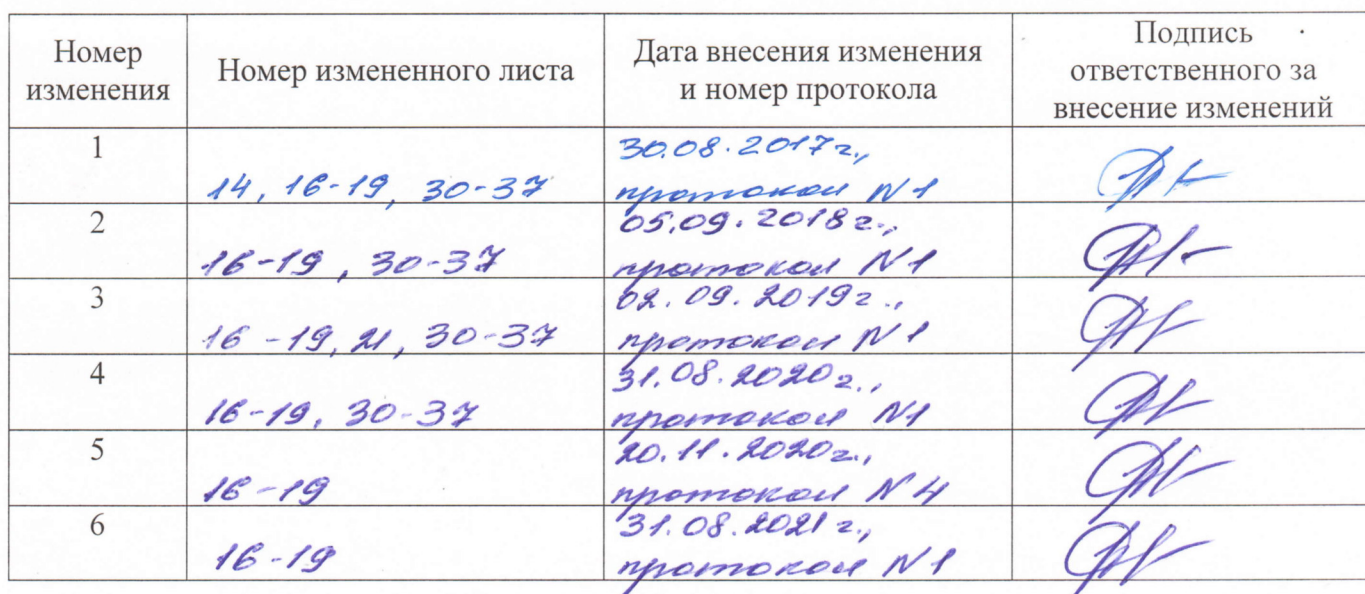 Номер изменения
Номер измененного листа
Дата внесения изменения и номер протокола
Подпись ответственного за внесение изменений
1
14, 16-19, 30-37
30.08.2017г.,
протокол N1
2
16-19, 30-37
05.09.2018г.,
протокол N1
3
16-19, 21, 30-37
02.09.2019г.,
протокол N1
4
16-19, 30-37
31.08.2020г.,
протокол N1
5
16-19
20.11.2020г.,
протокол N4
6
16-19
31.08.2021г.,
протокол N1